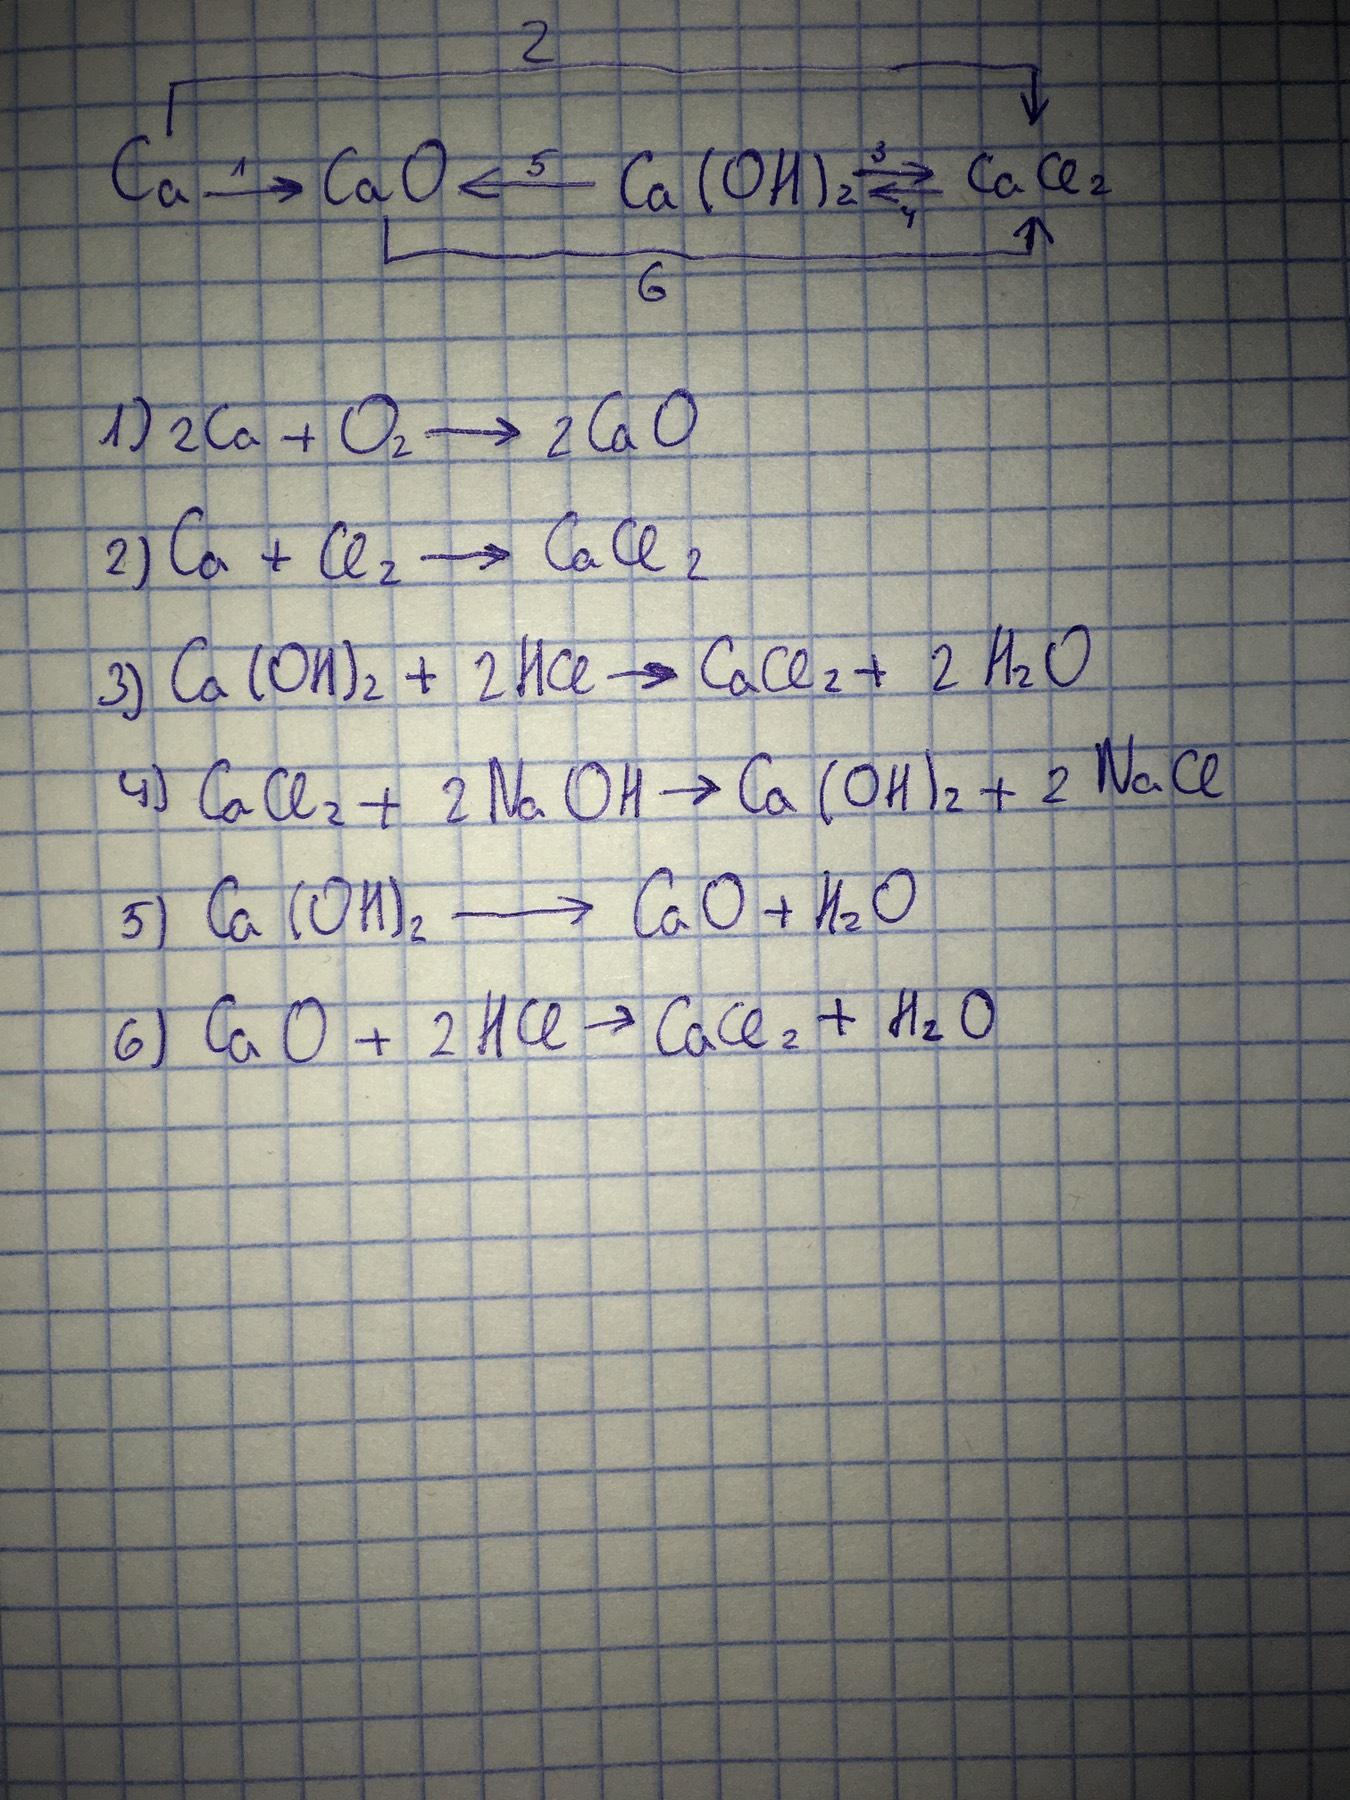 2
Ca →1 CaO ←5 Ca(OH)₂ ⇄ 3 4 CaCl₂
6
1) 2Ca + O₂ → 2CaO
2) Ca + Cl₂ → CaCl₂
3) Ca(OH)₂ + 2HCl → CaCl₂ + 2H₂O
4) CaCl₂ + 2NaOH → Ca(OH)₂ + 2NaCl
5) Ca(OH)₂ → CaO + H₂O
6) CaO + 2HCl → CaCl₂ + H₂O